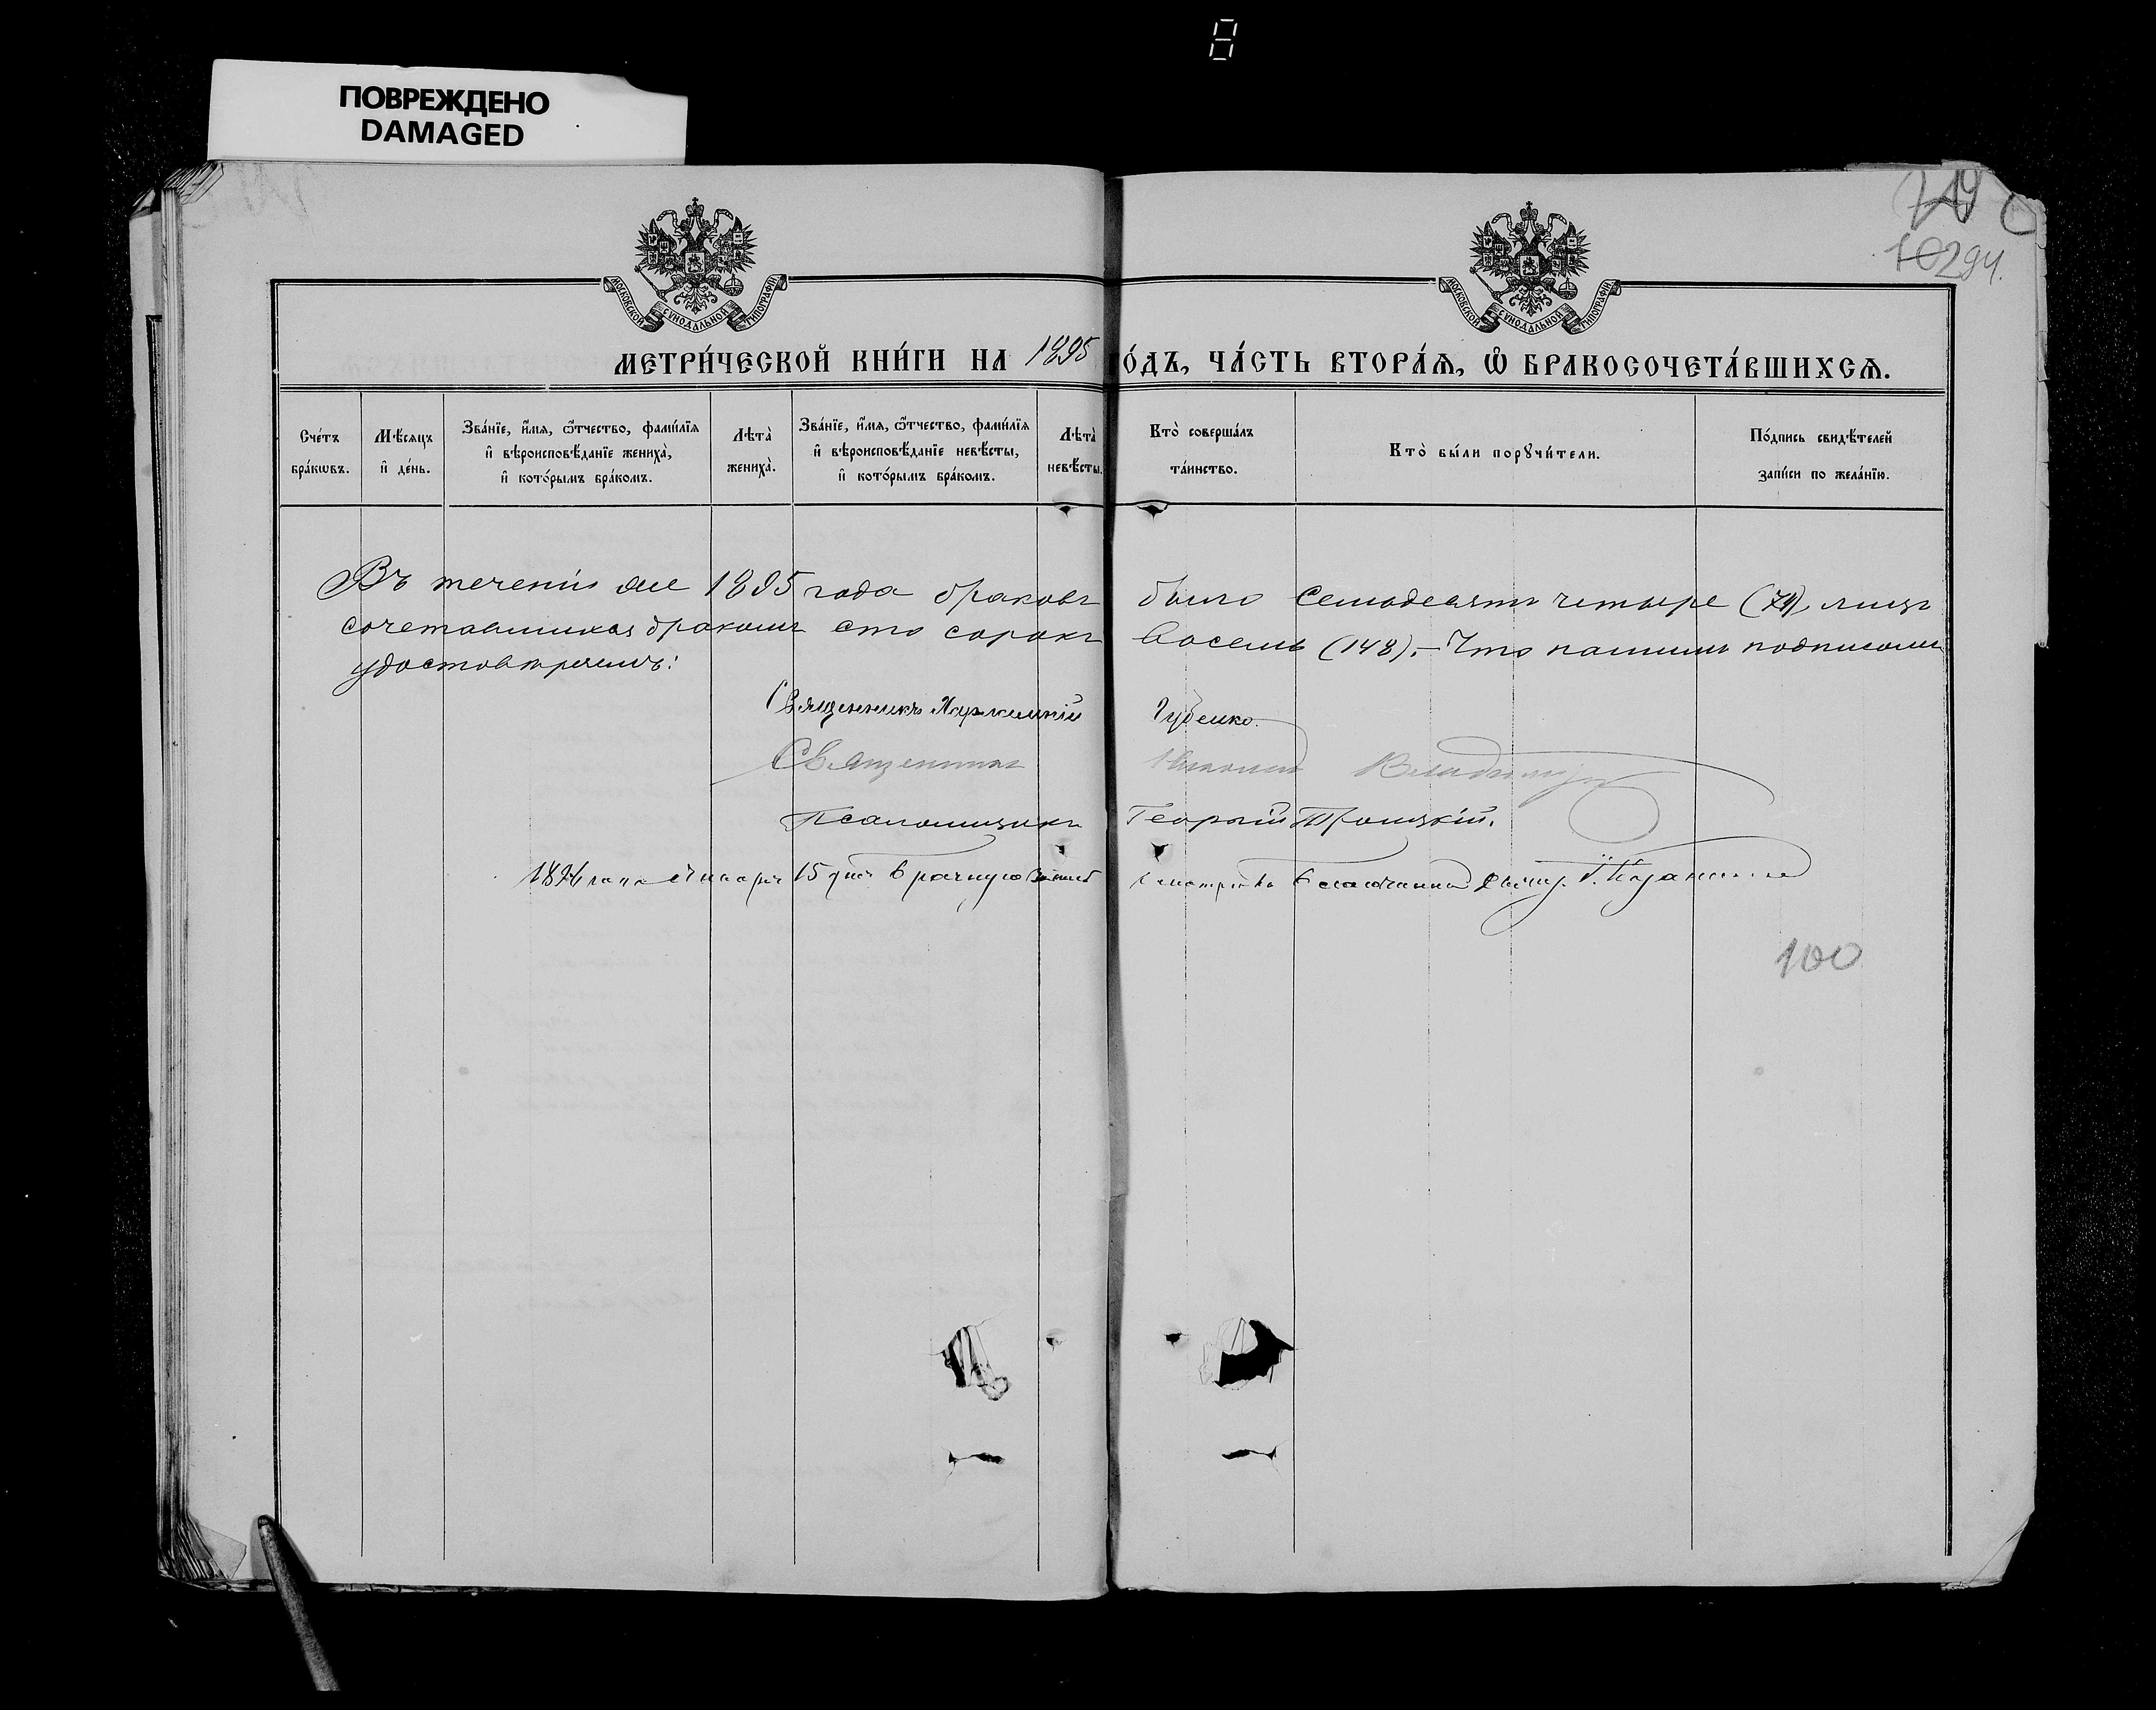 8
ПОВРЕЖДЕНО
DAMAGED
149
10294.
МОСКОВСКОЙ СУНОДАЛЬНОЙ ТИПОГРАФІИ
МОСКОВСКОЙ СУНОДАЛЬНОЙ ТИПОГРАФІИ
МЕТРИ́ЧЕСКОЙ КНИ́ГИ НА 1895 ГО́ДЪ, ЧА́СТЬ ВТОРА́Ѧ, Ѽ БРАКОСОЧЕТА́ВШИХСѦ.
Сче́тъ
бра́кѡвъ.
Мѣсяцъ
и҆ де́нь.
Зва́нїе, и҆́мѧ, ѻ҆́тчество, фами́лїѧ
и҆ вѣроисповѣданїе жениха̀,
и҆ кото́рымъ бра́комъ.
Лѣта̀
жениха̀.
Зва́нїе, и҆́мѧ, ѻ҆́тчество, фами́лїѧ
и҆ вѣроисповѣданїе невѣсты,
и҆ кото́рымъ бра́комъ.
Лѣта̀
невѣсты.
Кто̀ соверша́лъ
та́инство.
Кто̀ бы́ли порꙋчи́тели.
По́дпись свидѣтелей
за́писи по жела́нїю.
Въ теченіи 1895 года браковъ было семьдесятъ четыре (74), лицъ
сочетавшихся бракомъ сто сорокъ восемь (148).- Что нашими подписями
удостовѣряемъ:
Священникъ Губенко.
Священникъ Владимиръ
Псаломщикъ Георгій Троицкій.
15 дня
100